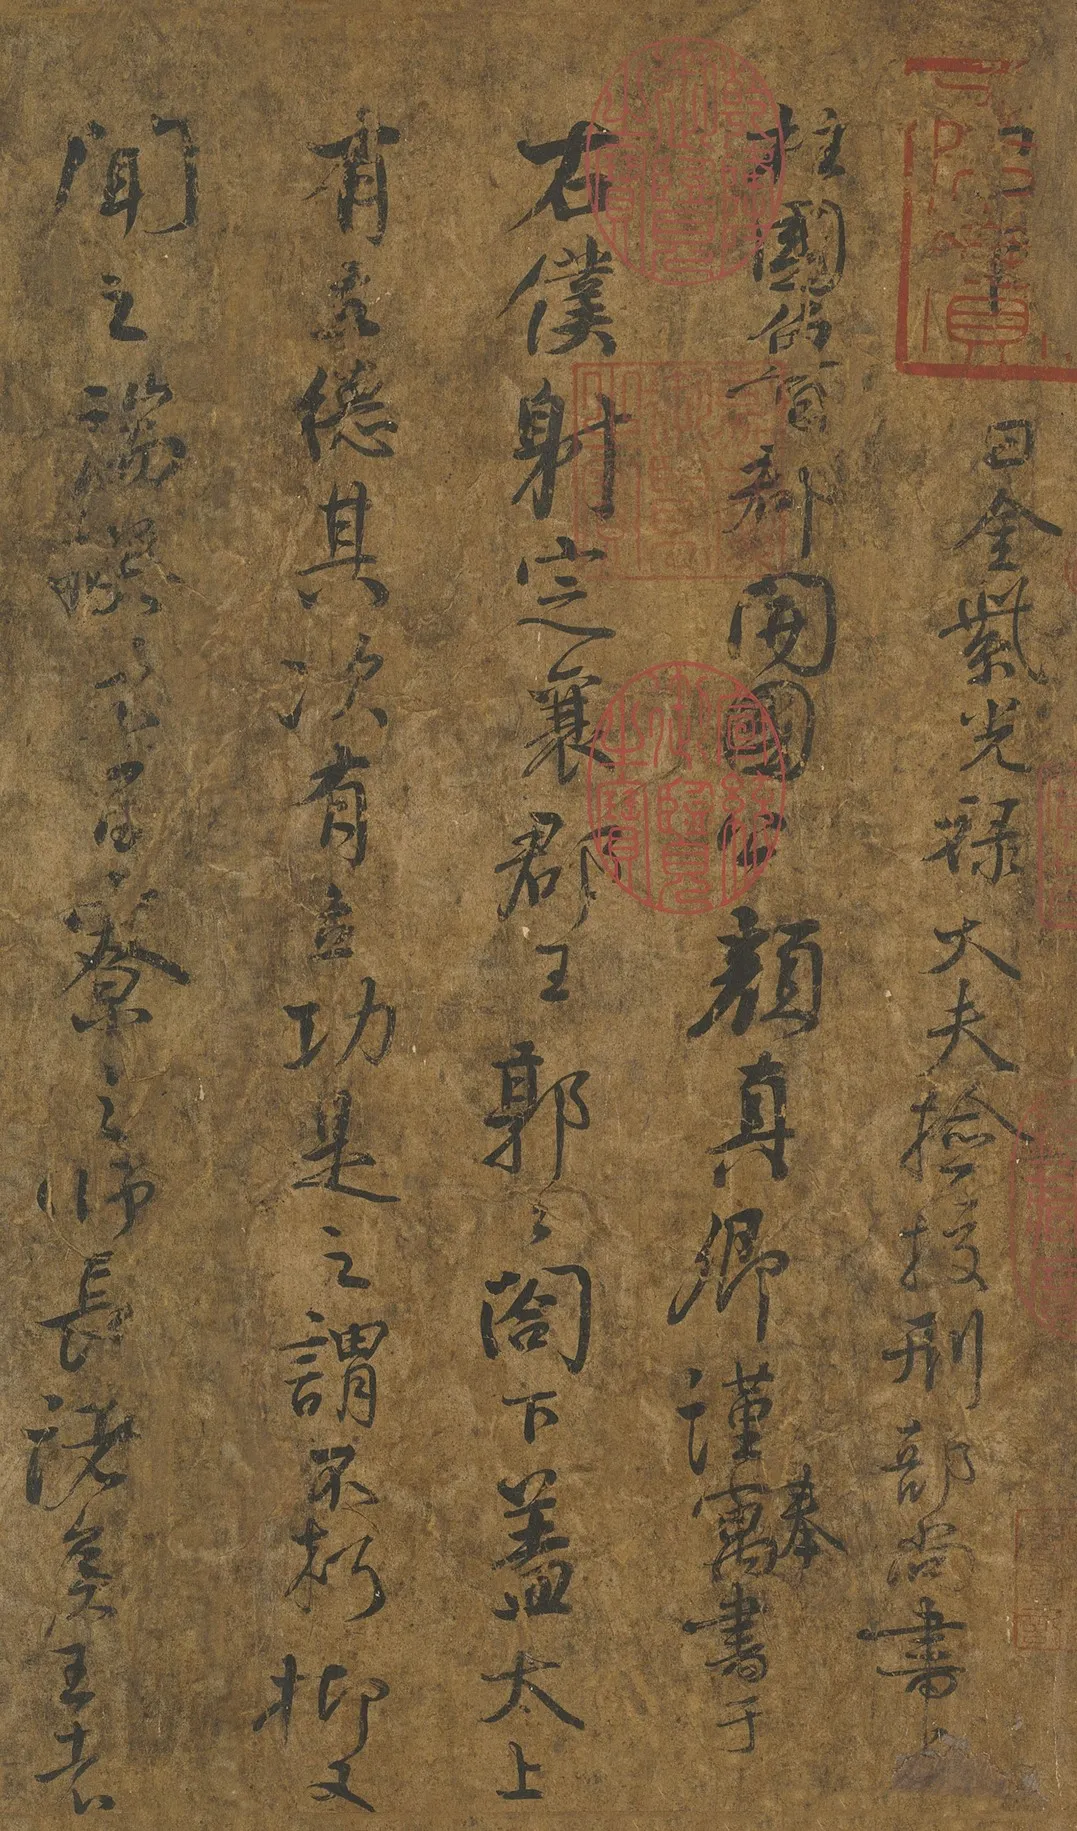 日金紫光禄大夫捡挍刑部尚書上
柱國魯郡開國公顔真卿謹寓奉書于
右僕射定襄郡王郭之閤下盖太上
有立德其次有立功是之謂不朽抑又
聞之端揆者百寮之師長諸矦王者